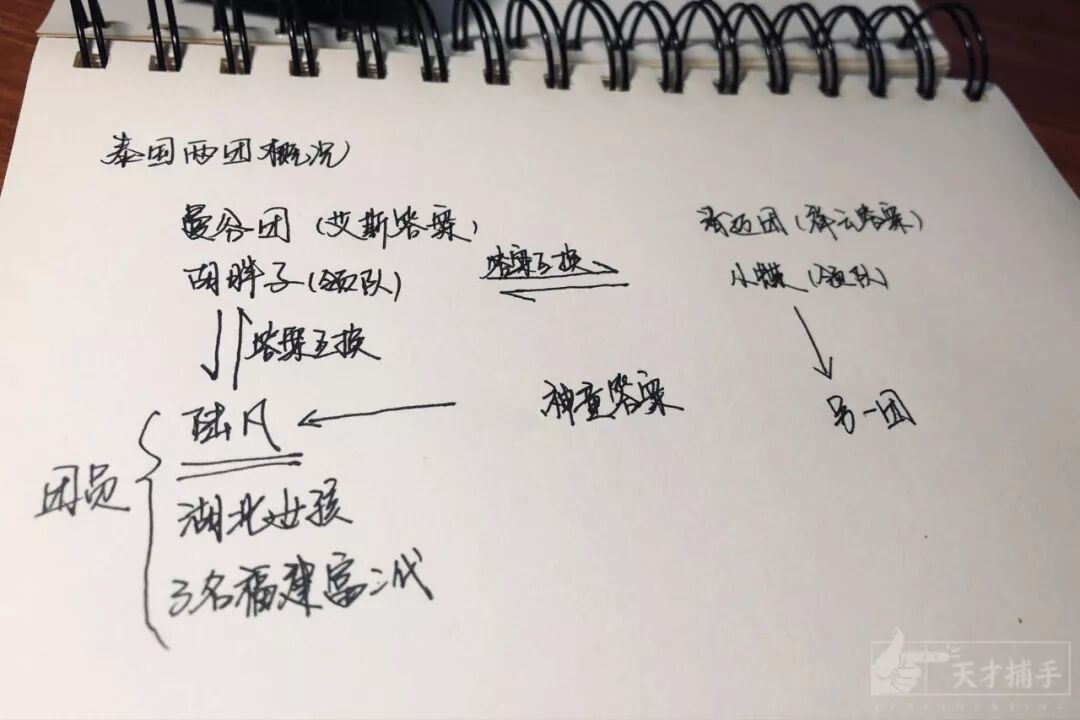 泰国两团概况
曼谷团（艾斯答案）
胡胖子（领队）
答案互换
清迈团（祥云答案）
小燃（领队）
答案互换
神童答案
另一团
团员
陆凡
湖北女孩
3名福建富二代
天才捕手